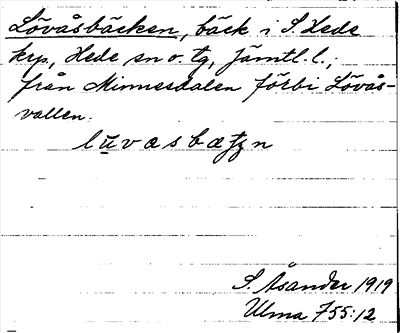 Lövåsbäcken, bäck i S. Hede
krp, Hede sn o. tg, Jämtl. l.;
från Minnesdalen förbi Lövås-
vallen.
S. Åsander 1919
Ulma 755:12